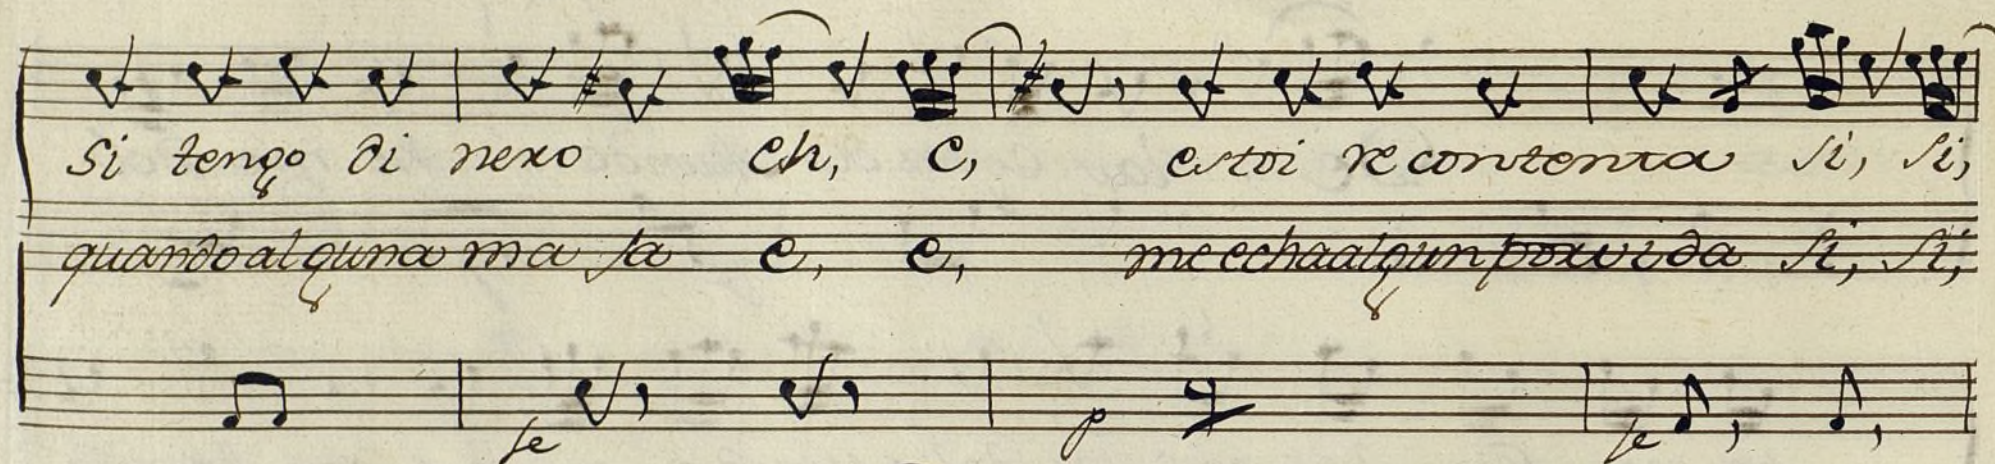 Si tengo dinero eh, e, estoi recontenta si, si,
quando alguna masa e, e, me echa algun porvida si, si,
fe p fe